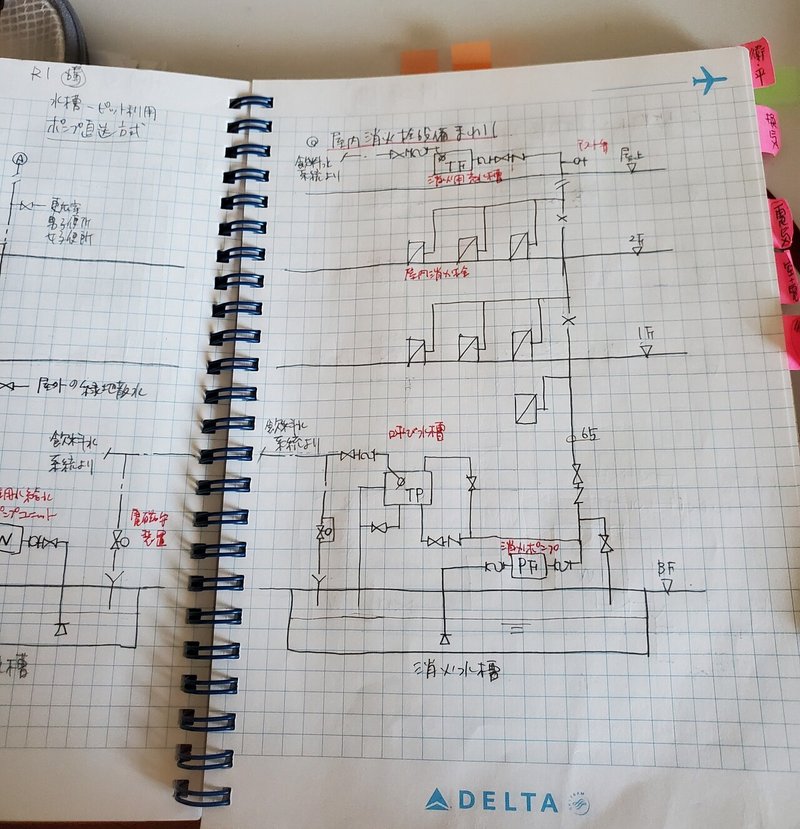 R1
水槽-ピット利用
ポンプ直送方式
A
更衣室
男子便所
女子便所
屋外の緑地散水
飲料水
系統より
用水給水
ポンプユニット
電磁弁
装置
水槽
屋内消火栓設備まわり
飲料水
系統より
TF
消火用充水槽
テスト弁
屋上
2F
屋内消火栓
1F
飲料水
系統より
呼び水槽
TP
65
消火ポンプ
PF
BF
消火水槽
衛・平
換気
電気
DELTA